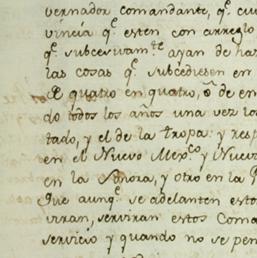 vernador comandante, q.e cui
vincia q.e esten con arreglo
q.e subcesivam.te ayan de ha
las cosas q.e subcediesen en
de quatro en quatro, ô de en
do todos los años una vez lo
tado, y el de la tropa; y resp
en el Nuevo Mex.co y Nuevo
en la Sonora, y otro en la P
que aunq.e se adelanten esto
virran, serviran estos Coma
servicio y quando no se pen